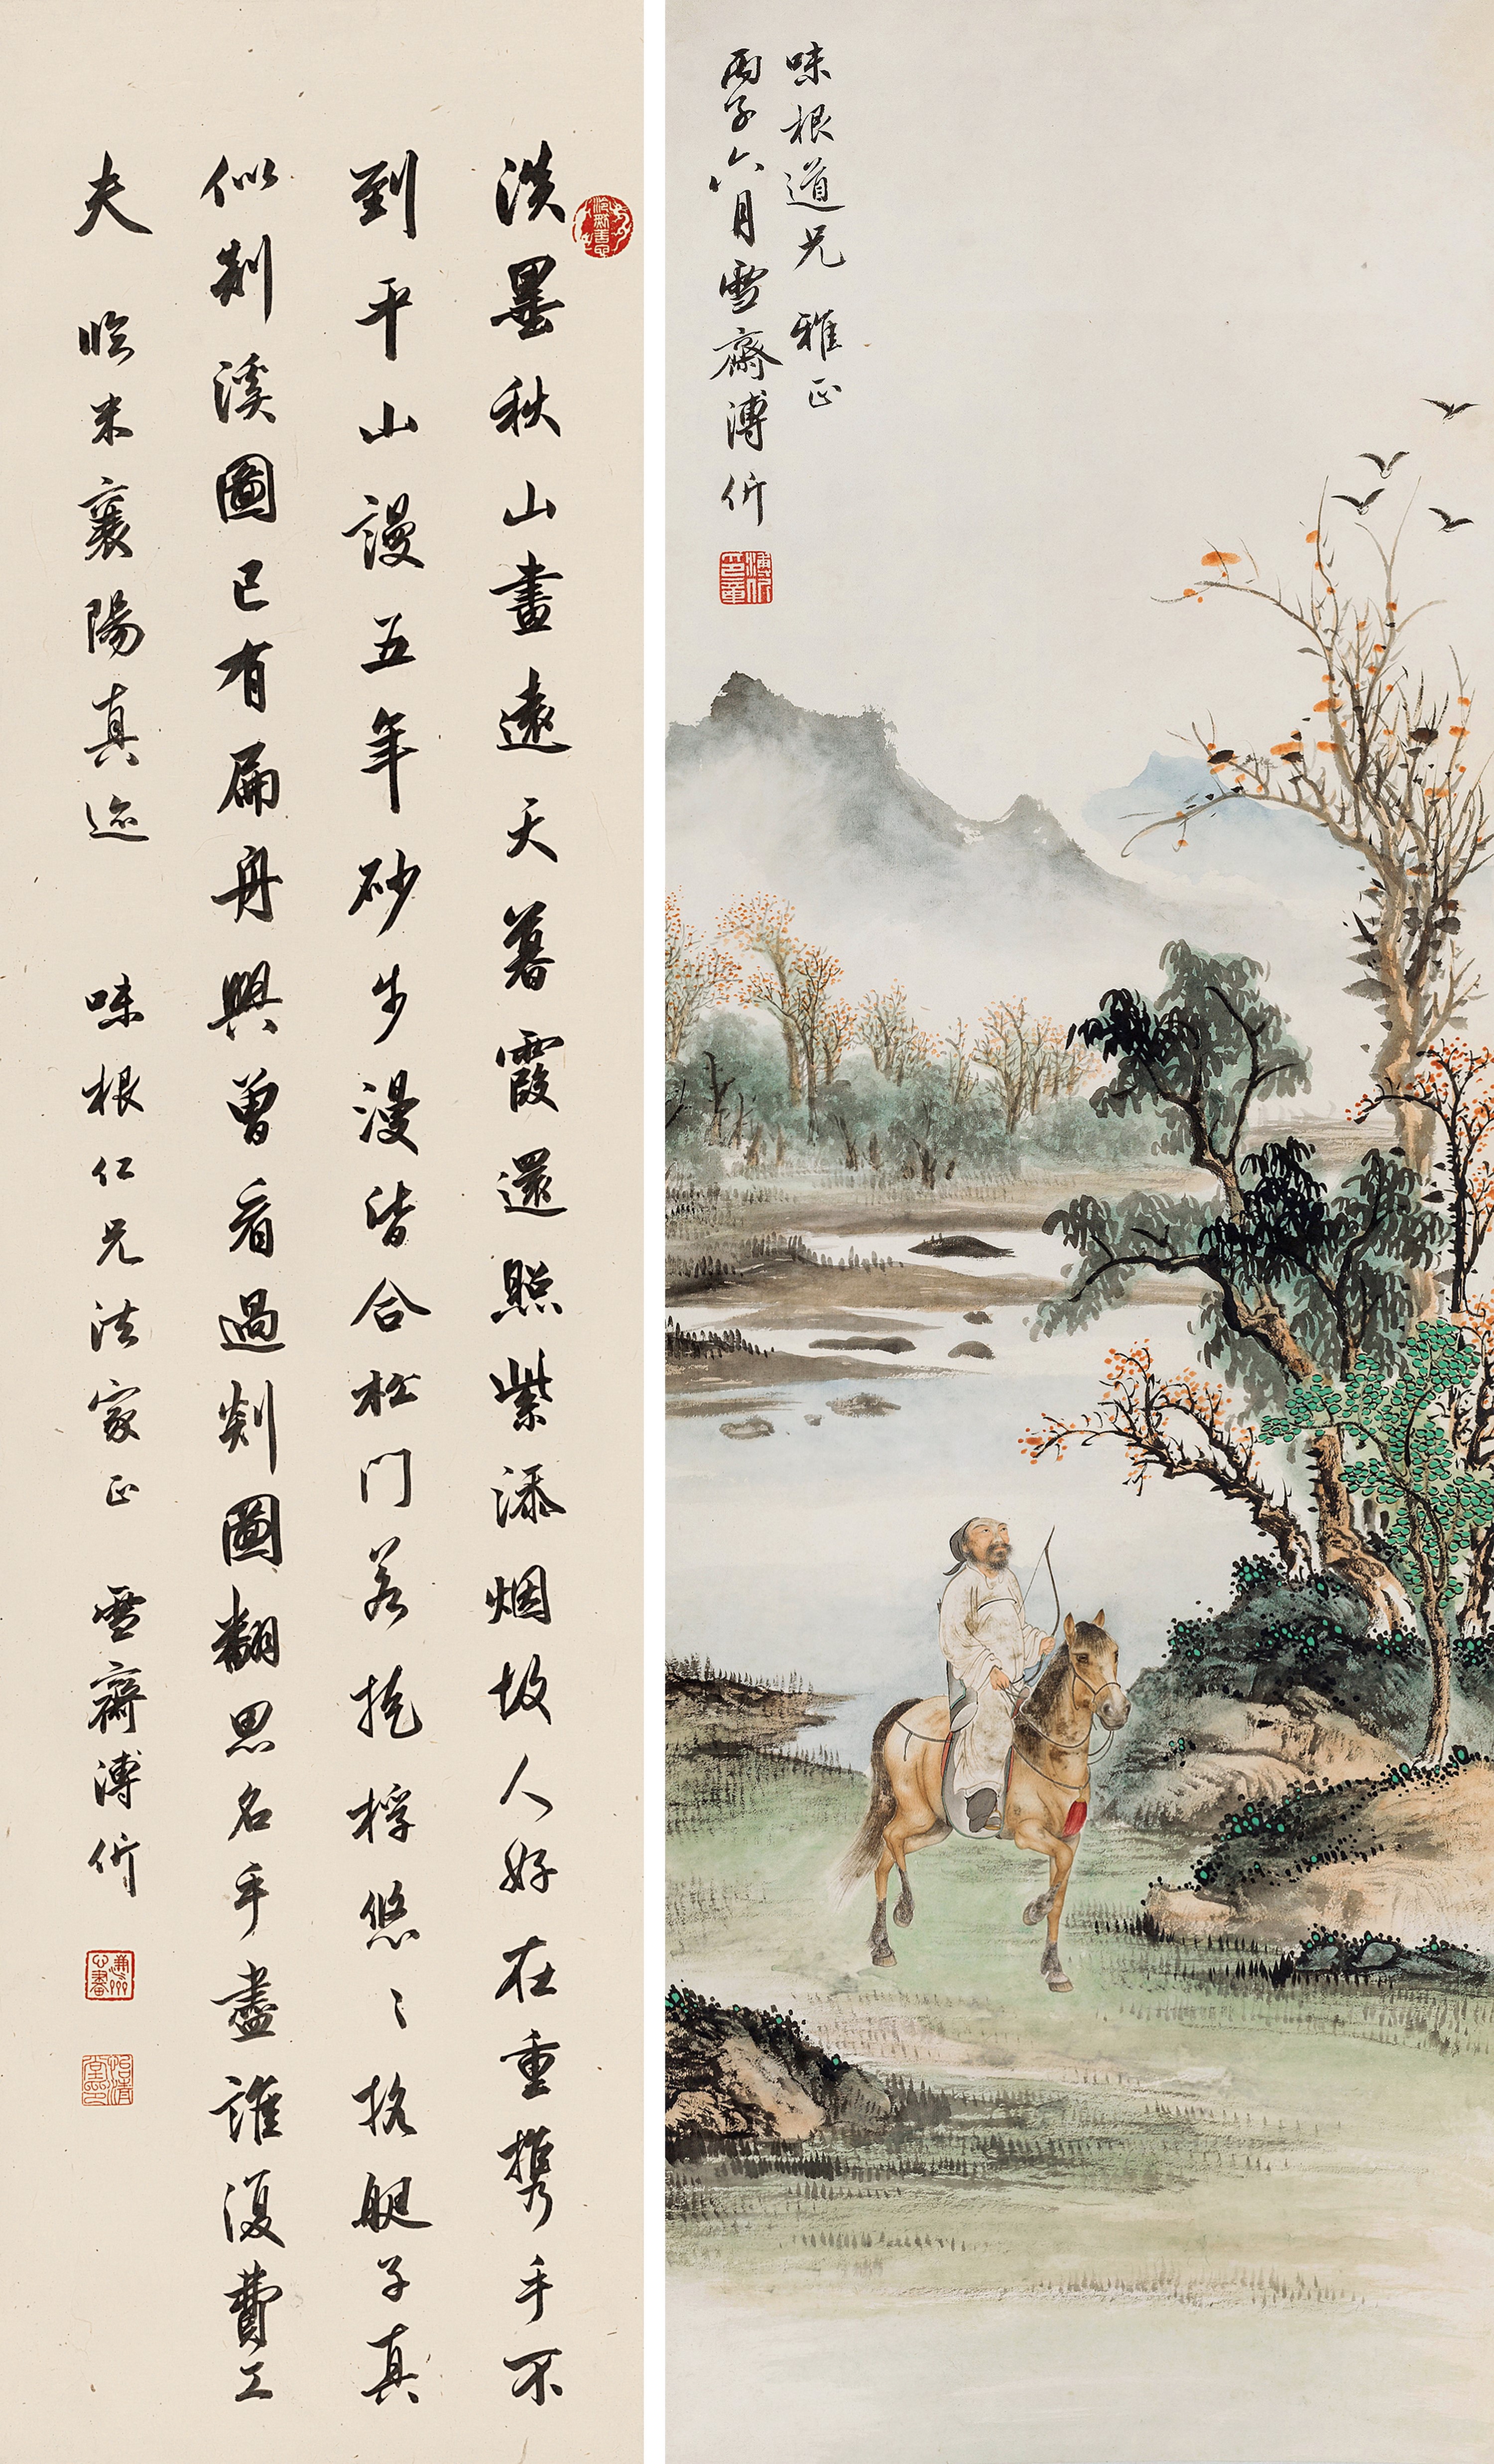 味根道兄雅正
丙子六月雪齋溥伒
溥伒印章
淡墨秋山畫遠天暮霞還照紫添烟故人好在重携手不
到平山謾五年砂步漫皆合松門若拖桴悠〻搖艇子真
似剡溪圖已有扁舟興曾看過剡圖翻思名手盡誰復費工
夫 臨米襄陽真迹 味根仁兄法家正 雪齋溥伒
怡清堂印